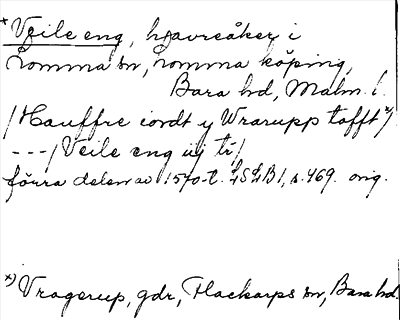 *Veile eng, havreåker i
Lomma sn, Lomma köping,
Bara hd, Malm. l.
/Hauffre iordt y Wrarupp tofft x)/
---/Veile eng iij tr/
förra delen av 1570-t. LSLB1, s. 469. orig.
x) Vragerup, gdr, Flackarps sn, Bara hd.